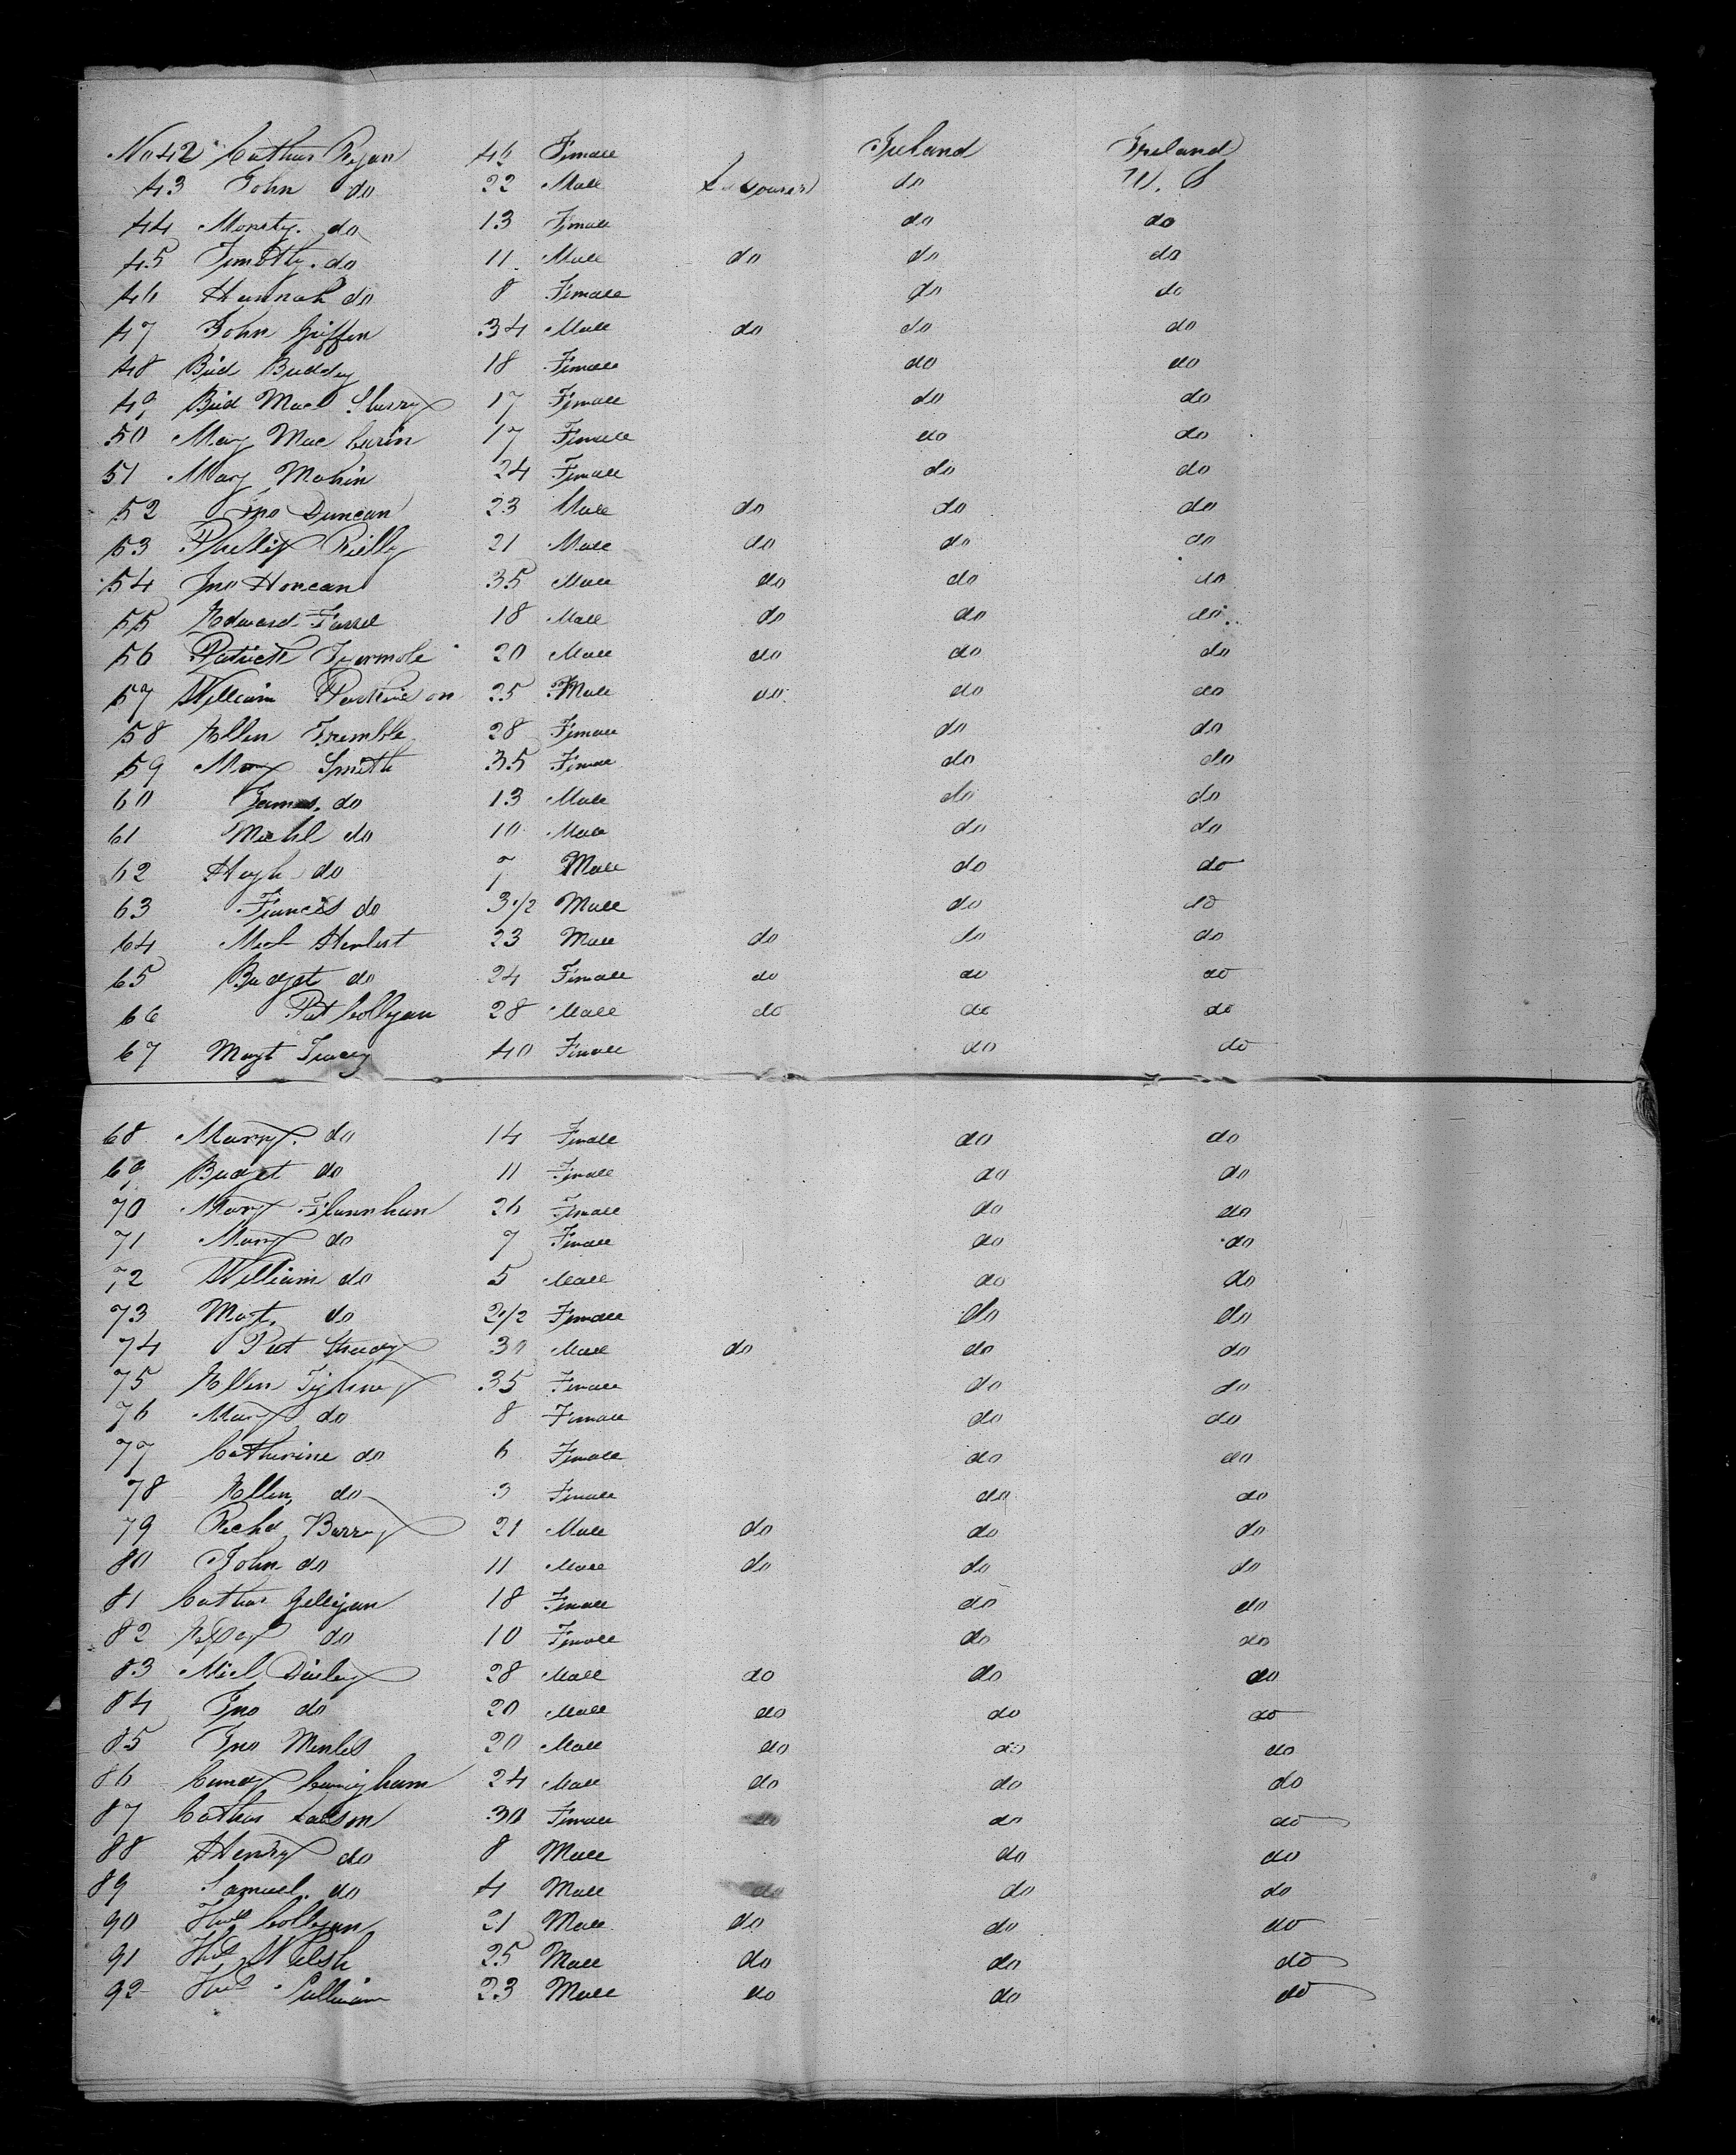 No 42 Cathar Ryan 46 Female Ireland Ireland
43 John do 22 Male Labourer do U. S
44 Morsty. do 13 Female do do
45 Timothy. do 11 Male do do do
46 Hannah do 8 Female do do
47 John Griffin 34 Male do do do
48 Brid Buddy 18 Female do do
49 Brid Mac Sherry 17 Female do do
50 Mary Mac Curin 17 Female do do
51 Mary Mahin 24 Female do do
52 Jno Duncan 23 Male do do do
53 Phillip Rielly 21 Male do do do
54 Jno Horean 35 Male do do do
55 Edward Farrel 18 Male do do do
56 Patrick 20 Male do do do
57 William 25 Male do do do
58 Ellen Tremble 28 Female do do
59 Mary Smith 35 Female do do
60 James. do 13 Male do do
61 Michl do 10 Male do do
62 Hugh do 7 Male do do
63 Francis do 3 1/2 Male do do
64 Mich Herbert 23 Male do do do
65 Budget do 24 Female do do do
66 Pat Collgan 28 Male do do do
67 Magt Tracey 40 Female do do
68 Marry. do 14 Female do do
69 Budget do 11 Female do do
70 Mary Flannhan 26 Female do do
71 Mary do 7 Female do do
72 William do 5 Male do do
73 Magt. do 2 1/2 Female do do
74 Pat 30 Male do do do
75 Ellen 35 Female do do
76 Mary do 8 Female do do
77 Catherine do 6 Female do do
78 Ellen do 3 Female do do
79 Richd Barry 21 Male do do do
80 John do 11 Male do do do
81 Cathar Gilligan 18 Female do do
82 do 10 Female do do
83 Mich Dailey 28 Male do do do
84 Jno do 20 Male do do do
85 Jno 20 Male do do do
86 Cunigham 24 Male do do do
87 Cathar Lawson 30 Female do do
88 Henry do 8 Male do do
89 Samuel. do 4 Male do do
90 Collgan 21 Male do do do
91 Welsh 25 Male do do do
92 Sullivan 23 Male do do do